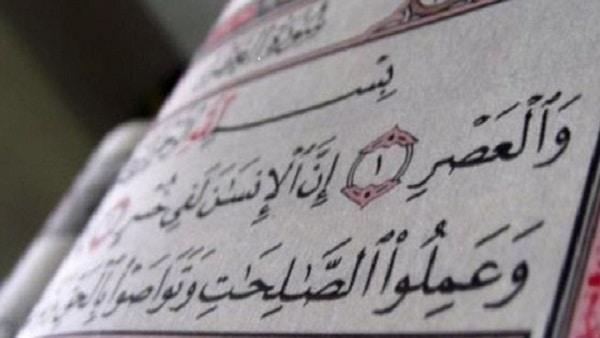 بِسْمِ ٱللَّهِ
وَٱلْعَصْرِ ١ إِنَّ ٱلْإِنسَٰنَ لَفِى خُسْرٍ
وَعَمِلُوا۟ ٱلصَّٰلِحَٰتِ وَتَوَاصَوْا۟ بِٱلْحَقِّ